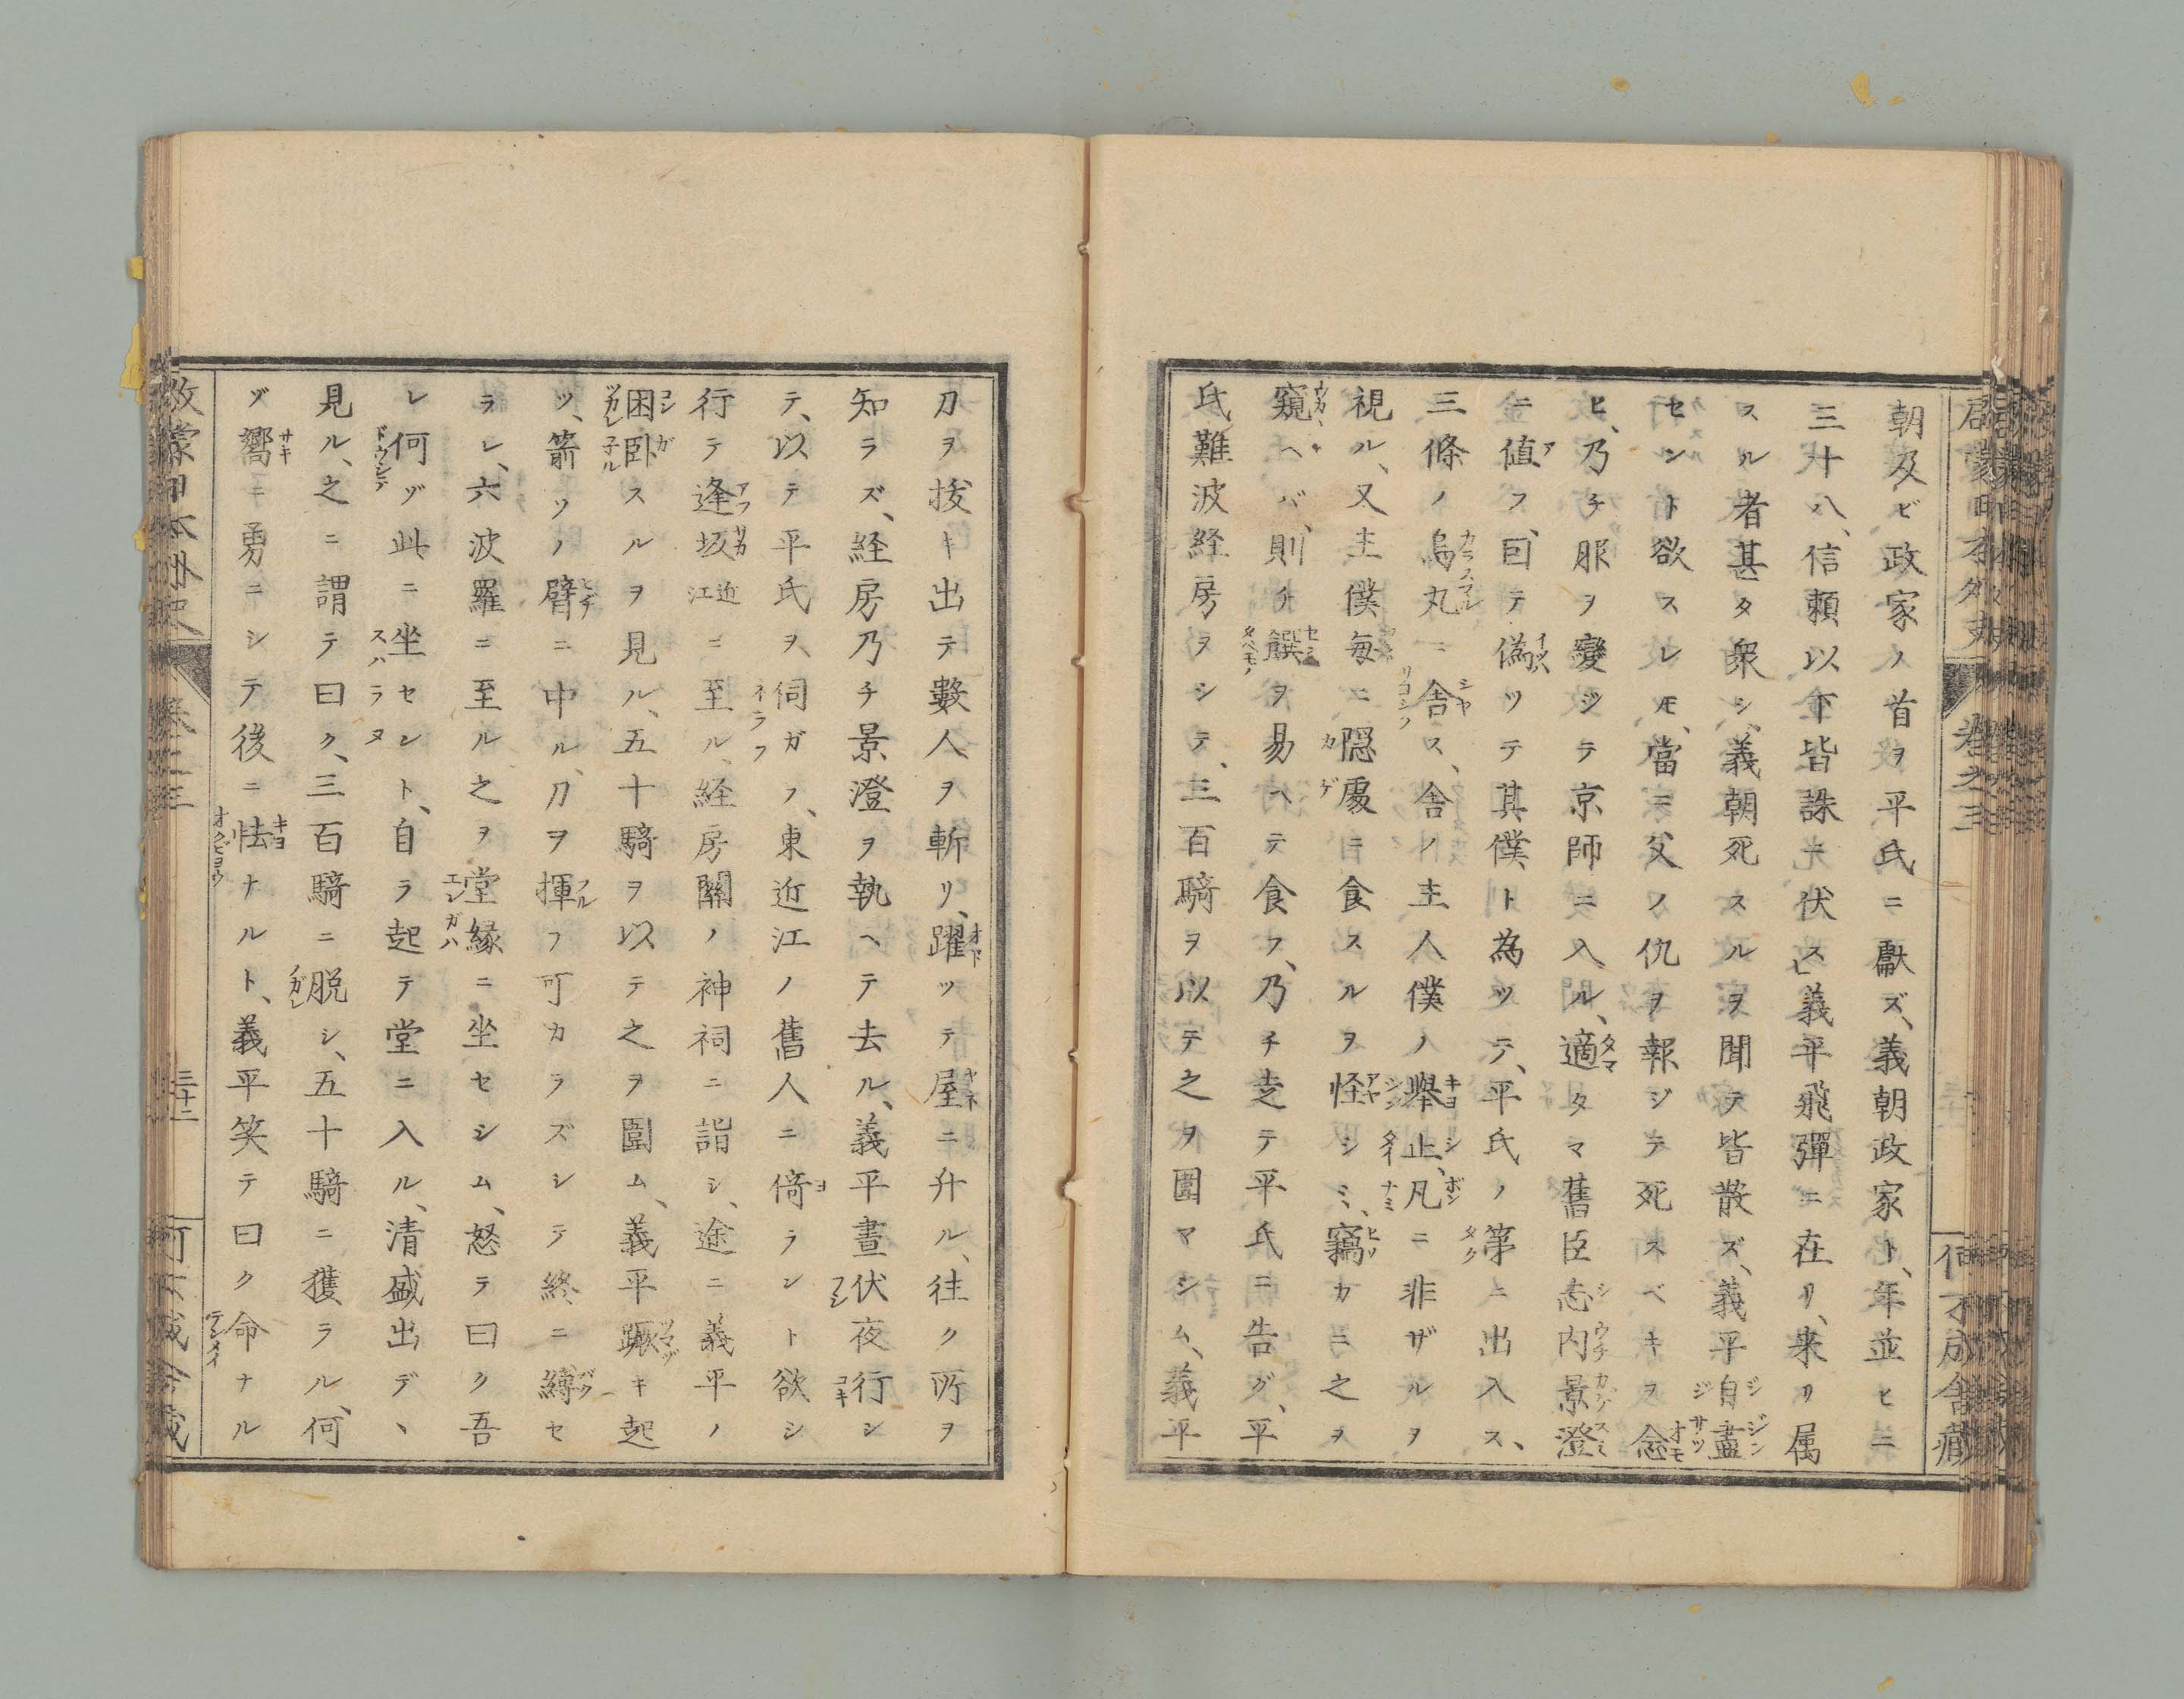 朝及ビ政家ノ首ヲ平氏ニ獻ズ、義朝政家ト、年並ヒニ
三十八、信頼以下皆誅ニ伏ス、義平飛彈ニ在リ、来リ属
スル者甚タ衆シ、義朝死スルヲ聞テ皆散ズ、義平自盡
センと欲スレモ、當ニ父ノ仇ヲ報ジテ死スベキヲ念
ヒ、乃チ服ヲ變ジテ京師ニ入ル、適タマ舊臣志内景澄
ニ値フ、因テ偽ツテ其僕ト為ツテ、平氏ノ第ニ出入ス、
三條ノ烏丸ニ舎ス、舎ノ主人僕ノ擧止、凡ニ非ザルヲ
視ル、又主僕毎ニ隠處ニ食スルヲ怪シミ、竊カニ之ヲ
窺ヘバ、則チ饌ヲ易ヘテ食フ、乃チ走テ平氏ニ告グ、平
氏難波経房ヲシテ、三百騎ヲ以テ之ヲ圍マシム、義平
刀ヲ拔キ出テ數人ヲ斬リ、躍ツテ屋ニ升ル、往ク所ヲ
知ラズ、経房乃チ景澄ヲ執ヘテ去ル、義平晝伏夜行シ
テ、以テ平氏ヲ伺ガフ、東近江ノ舊人ニ倚ラント欲シ
行テ逢坂近江ニ至ル、経房關ノ神祠ニ詣シ、途ニ義平ノ
困卧スルヲ見ル、五十騎ヲ以テ之ヲ圍ム、義平蹶キ起
ツ、箭ソノ臂ニ中ル、刀ヲ揮フ可カラズシテ終ニ縛セ
ラレ、六波羅ニ至ル之ヲ堂縁ニ坐セシム、怒テ曰ク吾
レ何ゾ此ニ坐セント、自ラ起テ堂ニ入ル、清盛出デ、
見ル、之ニ謂テ曰ク、三百騎ニ脱シ、五十騎ニ獲ラル、何
ヅ嚮ニ勇ニシテ後ニ怯ナルト、義平笑テ曰ク命ナル
三十二